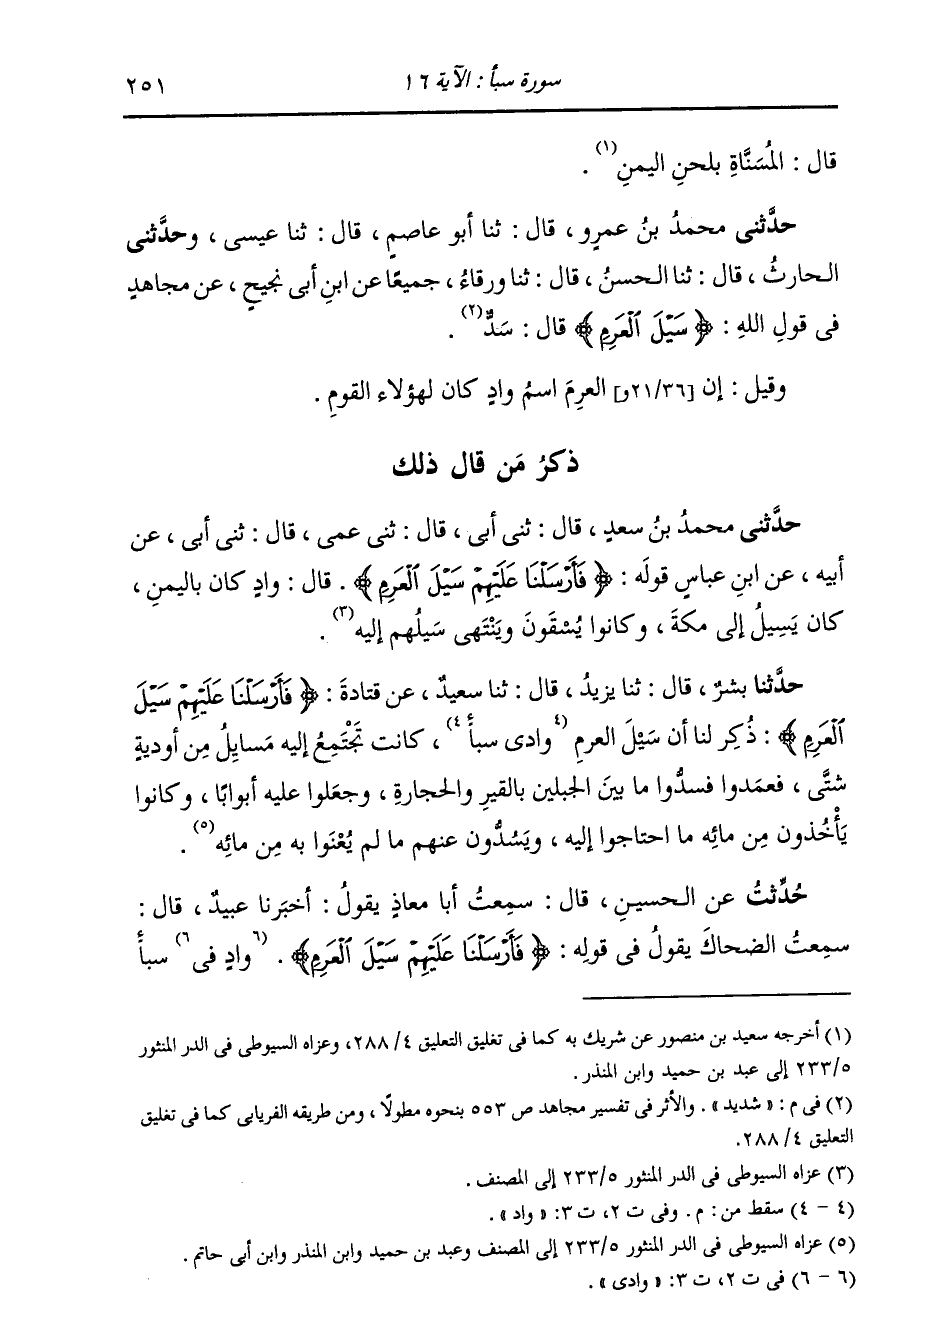 سورة سبأ : الآية ١٦
٢٥١
قال : المُسَنَّاةِ بلحنِ اليمنِ(١) .
حدَّثنى محمدُ بنُ عمرٍو ، قال : ثنا أبو عاصمٍ ، قال : ثنا عيسى ، وحدَّثنى
الحارثُ ، قال : ثنا الحسنُ ، قال : ثنا ورقاءُ ، جميعًا عن ابنِ أبى نجيحٍ ، عن مجاهدٍ
فى قولِ اللهِ : ﴿ سَيْلَ ٱلْعَرِمِ ﴾ قال : سَدٌّ(٢) .
وقيل : إن [٢١/٣٦و] العرِمَ اسمُ وادٍ كان لهؤلاء القومِ .
ذكرُ مَن قال ذلك
حدَّثنى محمدُ بنُ سعدٍ ، قال : ثنى أبى ، قال : ثنى عمى ، قال : ثنى أبى ، عن
أبيه ، عن ابنِ عباسٍ قولَه : ﴿ فَأَرْسَلْنَا عَلَيْهِمْ سَيْلَ ٱلْعَرِمِ ﴾ . قال : وادٍ كان باليمنِ ،
كان يَسِيلُ إلى مكةَ ، وكانوا يُسْقَونَ ويَنْتَهى سَيلُهم إليه(٣) .
حدَّثنا بشرٌ ، قال : ثنا يزيدُ ، قال : ثنا سعيدٌ ، عن قتادةَ : ﴿ فَأَرْسَلْنَا عَلَيْهِمْ سَيْلَ
ٱلْعَرِمِ ﴾ : ذُكِر لنا أن سَيْلَ العرمِ (٤وادى سبأً٤) ، كانت تَجْتَمِعُ إليه مَسايِلُ مِن أوديةٍ
شتَّى ، فعمَدوا فسدُّوا ما بينَ الجبلين بالقيرِ والحجارةِ ، وجعَلوا عليه أبوابًا ، وكانوا
يَأْخُذون مِن مائِه ما احتاجوا إليه ، ويَسُدُّون عنهم ما لم يُعْنَوا به مِن مائِه(٥) .
حُدِّثتُ عن الحسينِ ، قال : سمِعتُ أبا معاذٍ يقولُ : أخبَرنا عبيدٌ ، قال :
سمِعتُ الضحاكَ يقولُ فى قولِه : ﴿ فَأَرْسَلْنَا عَلَيْهِمْ سَيْلَ ٱلْعَرِمِ﴾ . (٦وادٍ فى٦) سبأً
(١) أخرجه سعيد بن منصور عن شريك به كما فى تغليق التعليق ٤/ ٢٨٨، وعزاه السيوطى فى الدر المنثور
٢٣٣/٥ إلى عبد بن حميد وابن المنذر .
(٢) فى م : « شديد » . والأثر فى تفسير مجاهد ص ٥٥٣ بنحوه مطولًا ، ومن طريقه الفريابى كما فى تغليق
التعليق ٤/ ٢٨٨.
(٣) عزاه السيوطى فى الدر المنثور ٢٣٣/٥ إلى المصنف .
(٤ – ٤) سقط من : م . وفى ت ٢، ت ٣: « واد » .
(٥) عزاه السيوطى فى الدر المنثور ٢٣٣/٥ إلى المصنف وعبد بن حميد وابن المنذر وابن أبى حاتم .
(٦ – ٦) فى ت ٢، ت ٣: « وادى » .